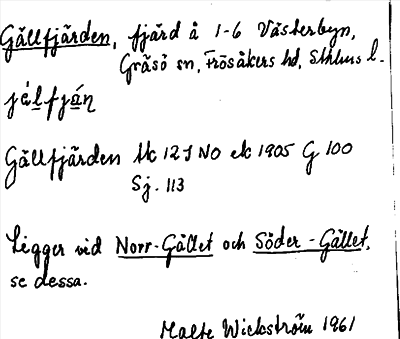 Gällfjärden, fjärd å 1-6 Västerbyn,
Gräsö sn, Frösåkers hd, Sthlms l.
jé̀lfjáṇ
Gällfjärden Mc 12 J NO ek 1905 G 100
Sj. 113
Ligger vid Norr-Gället och Söder-Gället,
se dessa.
Malte Wickström 1961